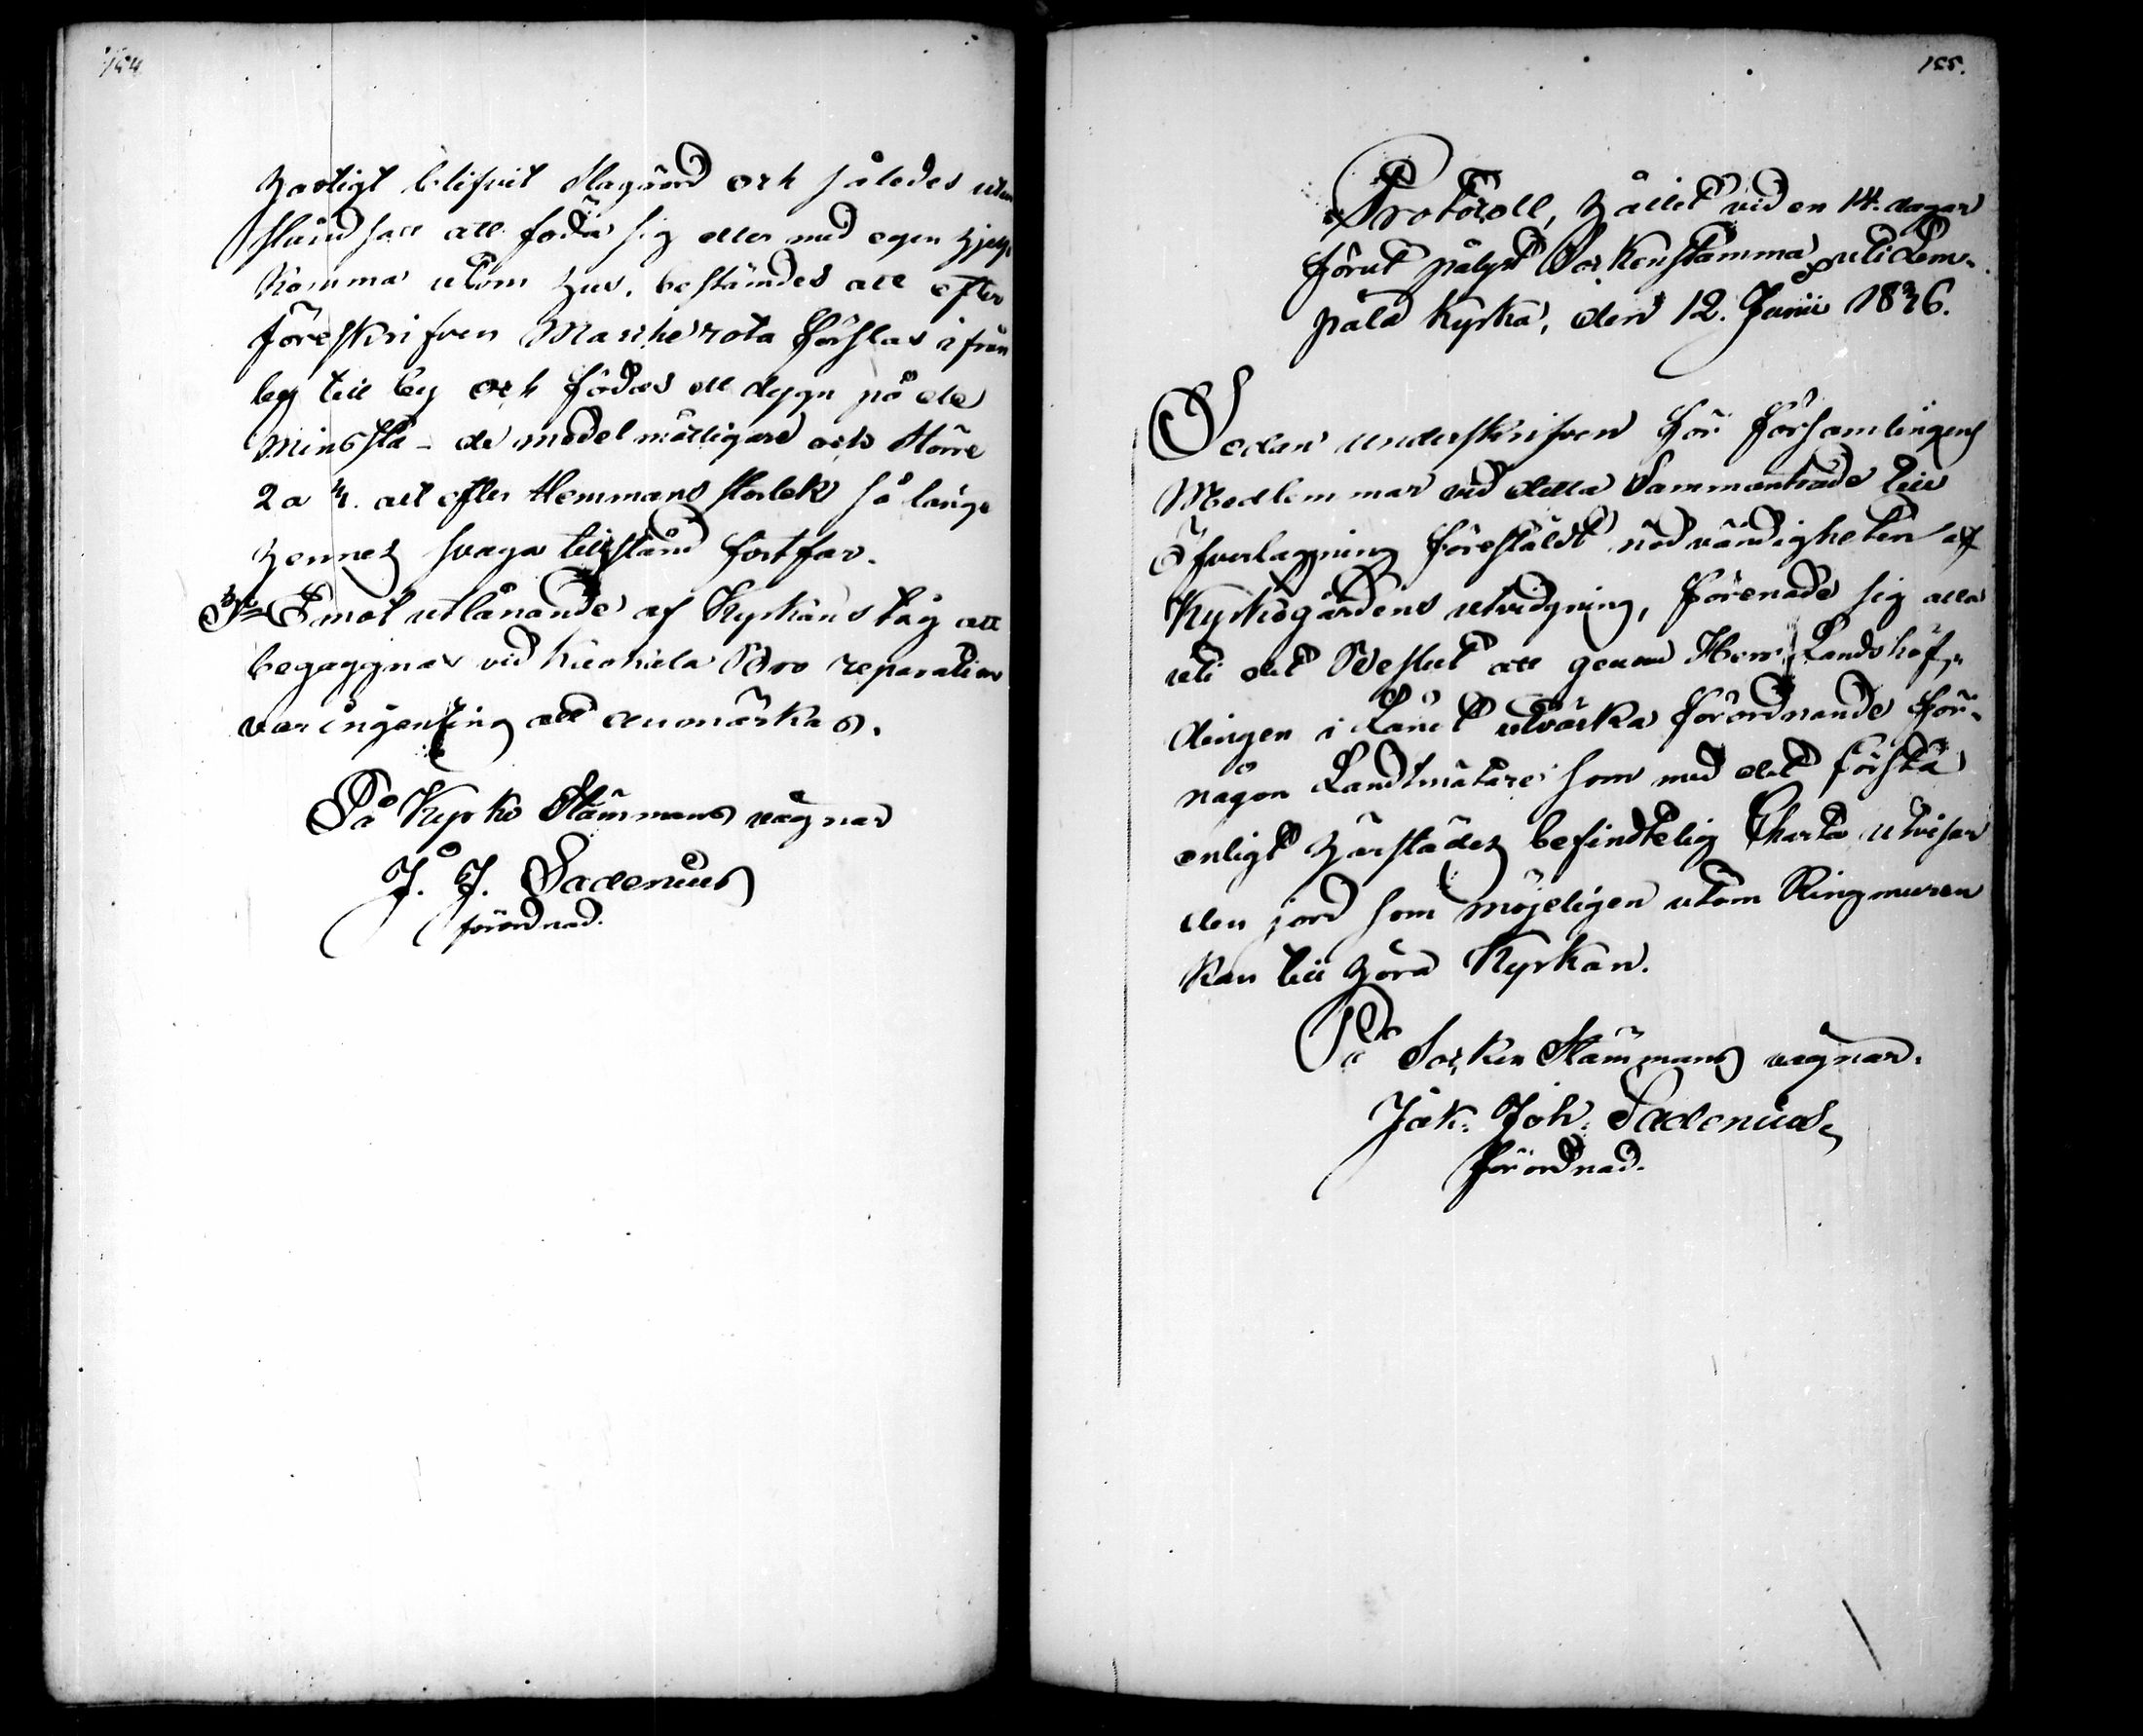 154
hastigt blifvit slagrörd och således utan
stånd satt att föda sig eller med egen hjelp
komma utom hus, bestämdes att efter
föreskrifven Marche'rota forslas ifrån
by till by och födas ett dygn på de
minsta – de medelmåttigare och större
2 a 3. alt efter Hemmans storlek så länge
hennes svaga tillstånd fortfar.
Emot utlånande af Kyrkans tåg att
begagnas vid Bro reparation
var ingenting att anmärkas.
På Kyrko Stämmans vägnar
J. J. Sadenius
förordnad.
155.
Protocoll, hållet vid en 14. dagar
förut pålyst Sockenstämma uti Lem-
påla Kyrka, den 12. Junii 1836.
Sedan underskrifven för Församlingens
Medlemmar vid detta Sammanträde till
Öfverläggning föreställdt nödvändigheten af
Kyrkogårdens utvidgning, förenade sig alla
uti det Beslut att genom Herr Landshöf-
dingen i Länet utvärka förordnande för
någon Landtmätare som med det första
enligt härstädes befindtelig Charta utvisar
den jord som möjeligen utom Ringmuren
kan till höra Kyrkan.
På Socken Stämmans vägnar.
Jak. Joh. Sadenius,
förordnad.